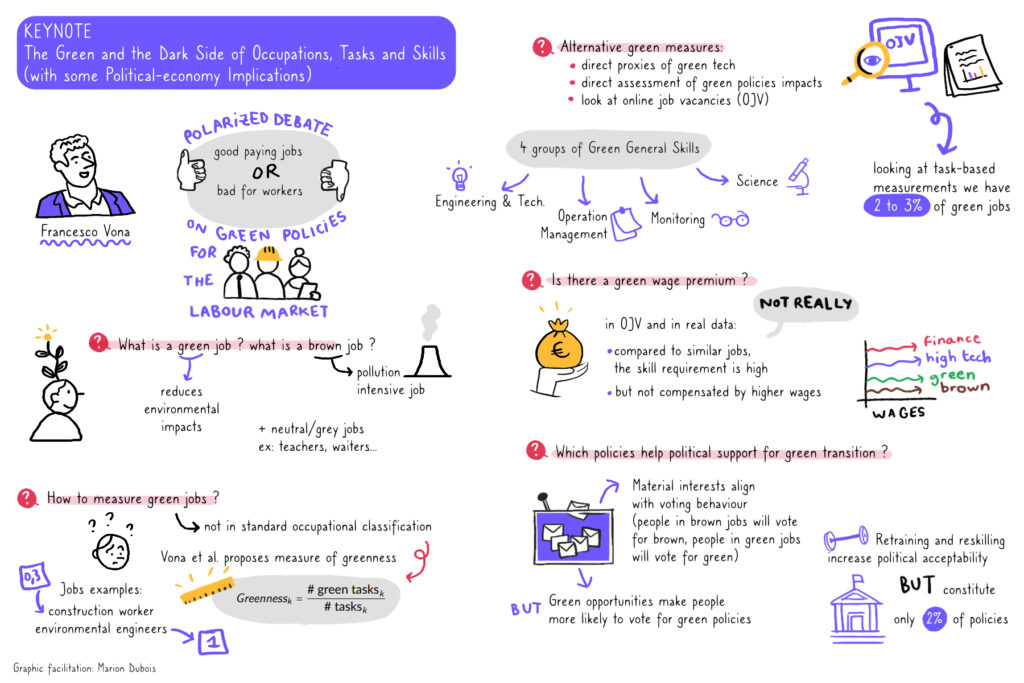 KEYNOTE
The Green and the Dark Side of Occupations, Tasks and Skills
(with some Political-economy Implications)
Francesco Vona
POLARIZED DEBATE
good paying jobs
OR
bad for workers
ON GREEN POLICIES
FOR
THE
LABOUR MARKET
? What is a green job ? what is a brown job ?
reduces
environmental
impacts
pollution
intensive job
+ neutral/grey jobs
ex: teachers, waiters...
? How to measure green jobs ?
not in standard occupational classification
? ? ?
Vona et al. proposes measure of greenness
Greennessₖ = # green tasksₖ
# tasksₖ
0,3
Jobs examples:
construction worker
environmental engineers
1
Graphic facilitation: Marion Dubois
? Alternative green measures:
• direct proxies of green tech
• direct assessment of green policies impacts
• look at online job vacancies (OJV)
OJV
looking at task-based
measurements we have
2 to 3% of green jobs
4 groups of Green General Skills
Engineering & Tech.
Operation
Management
Monitoring
Science
? Is there a green wage premium ?
NOT REALLY
€
in OJV and in real data:
• compared to similar jobs,
the skill requirement is high
• but not compensated by higher wages
finance
high tech
green
brown
WAGES
? Which policies help political support for green transition ?
Material interests align
with voting behaviour
(people in brown jobs will vote
for brown, people in green jobs
will vote for green)
BUT Green opportunities make people
more likely to vote for green policies
Retraining and reskilling
increase political acceptability
BUT constitute
only 2% of policies